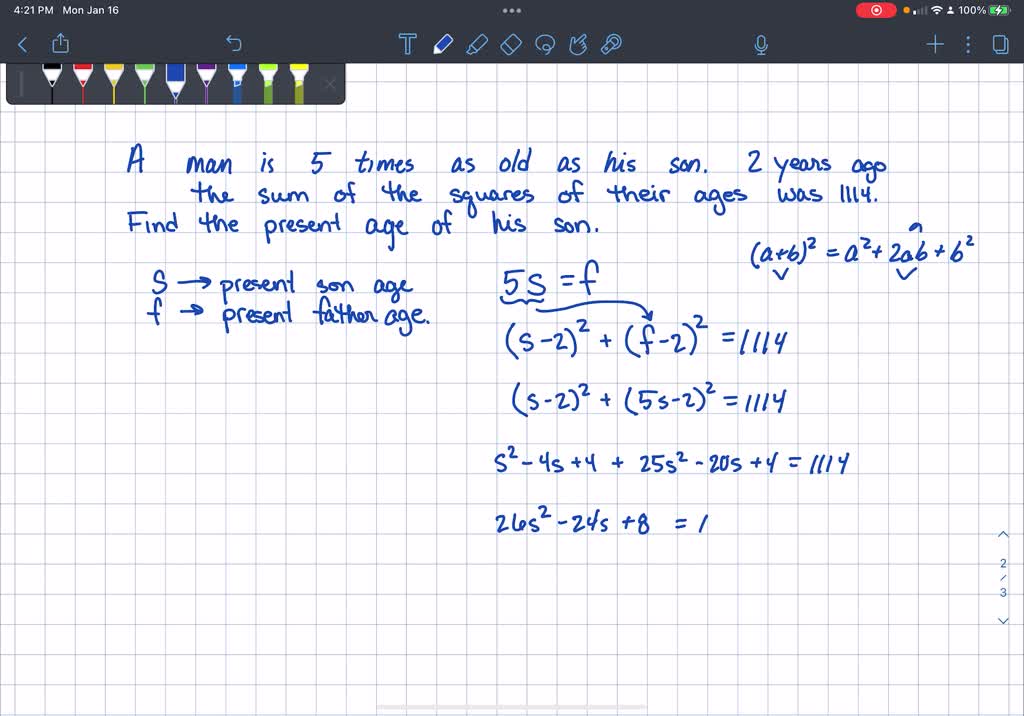 4:21 PM Mon Jan 16
100%
T
A man is 5 times as old as his son. 2 years ago
the sum of the squares of their ages was 1114.
Find the present age of his son.
(a+b)² = a² + 2ab + b²
S → present son age
f → present father age.
5s = f
(s-2)² + (f-2)² = 1114
(s-2)² + (5s-2)² = 1114
s² - 4s + 4 + 25s² - 20s + 4 = 1114
26s² - 24s + 8 = 1
2
/
3